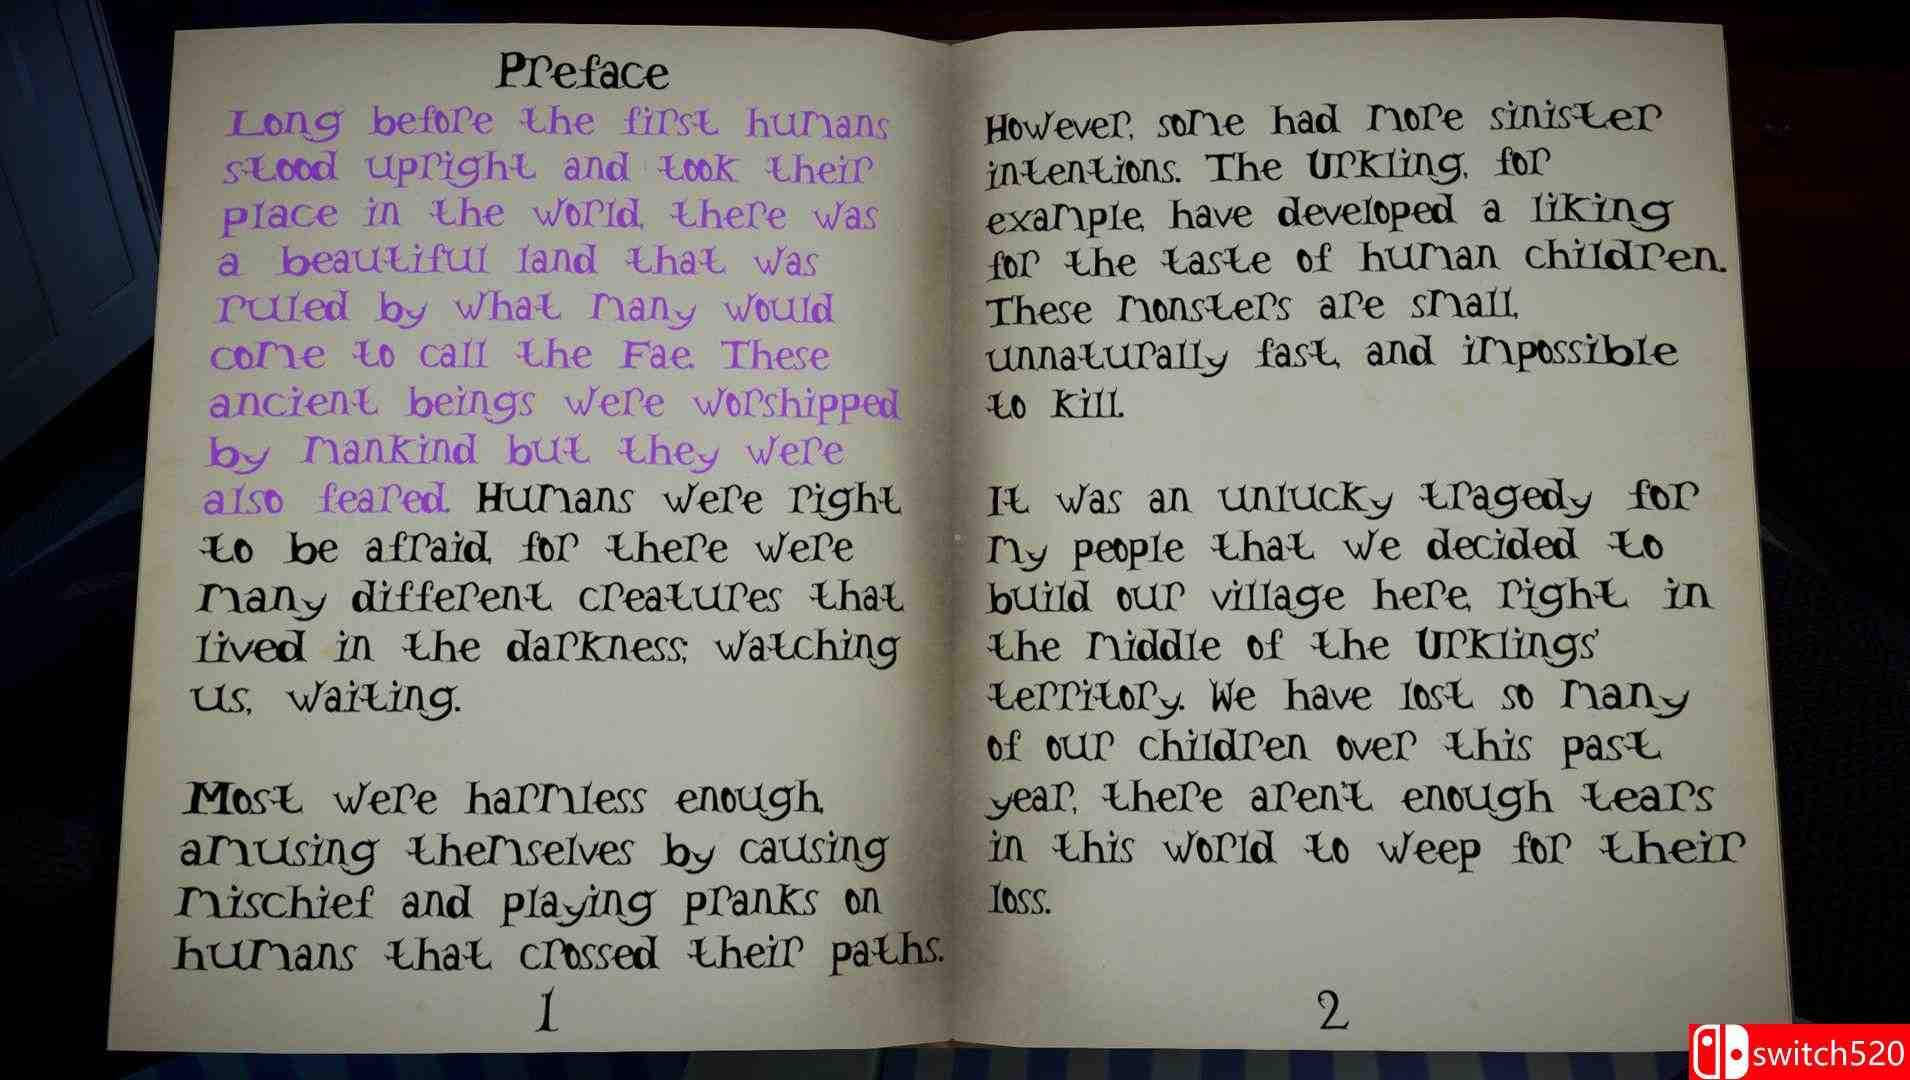 Preface
Long before the first humans
stood upright and took their
place in the world, there was
a beautiful land that was
ruled by what many would
come to call the Fae. These
ancient beings were worshipped
by mankind but they were
also feared. Humans were right
to be afraid, for there were
many different creatures that
lived in the darkness; watching
us, waiting.
Most were harmless enough,
amusing themselves by causing
mischief and playing pranks on
humans that crossed their paths.
1
However, some had more sinister
intentions. The Urkling, for
example, have developed a liking
for the taste of human children.
These monsters are small,
unnaturally fast, and impossible
to kill.
It was an unlucky tragedy for
my people that we decided to
build our village here, right in
the middle of the Urklings'
territory. We have lost so many
of our children over this past
year, there aren't enough tears
in this world to weep for their
loss.
2
switch520